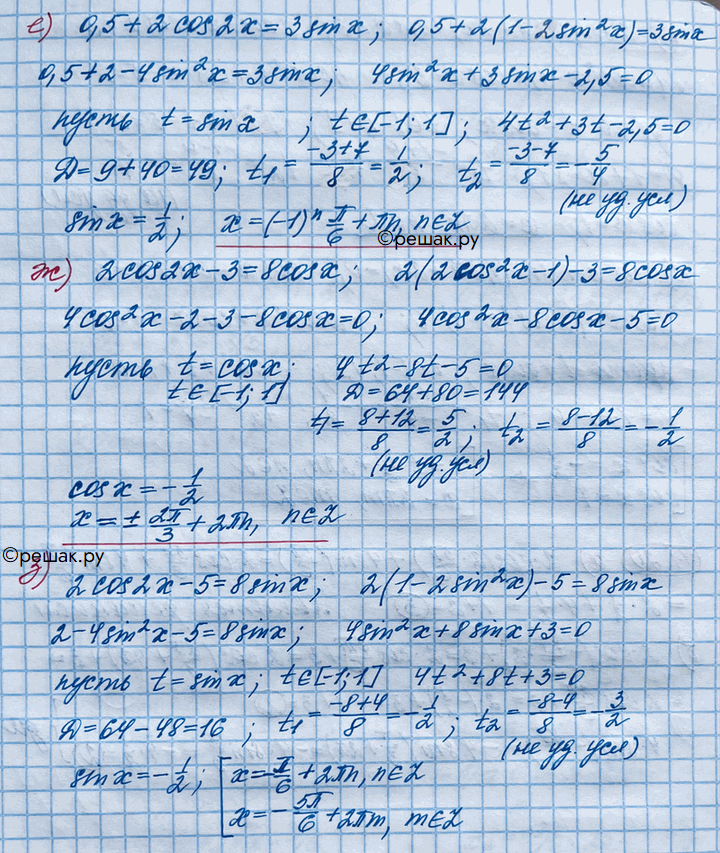 е) 0,5+2cos2x=3sinx; 0,5+2(1-2sin²x)=3sinx
0,5+2-4sin²x=3sinx; 4sin²x+3sinx-2,5=0
пусть t=sinx ; t∈[-1;1]; 4t²+3t-2,5=0
D=9+40=49; t₁=(-3+7)/8=1/2; t₂=(-3-7)/8=-5/4
(не уд. усл)
sinx=1/2; x=(-1)ⁿ π/6+πn, n∈Z
©решак.ру
ж) 2cos2x-3=8cosx; 2(2cos²x-1)-3=8cosx
4cos²x-2-3-8cosx=0; 4cos²x-8cosx-5=0
пусть t=cosx; 4t²-8t-5=0
t∈[-1;1] D=64+80=144
t₁=(8+12)/8=5/2; t₂=(8-12)/8=-1/2
(не уд. усл)
cosx=-1/2
x=±2π/3+2πn, n∈Z
©решак.ру
з) 2cos2x-5=8sinx; 2(1-2sin²x)-5=8sinx
2-4sin²x-5=8sinx; 4sin²x+8sinx+3=0
пусть t=sinx; t∈[-1;1] 4t²+8t+3=0
D=64-48=16 ; t₁=(-8+4)/8=-1/2; t₂=(-8-4)/8=-3/2
(не уд. усл)
sinx=-1/2; [x=-π/6+2πn, n∈Z
x=-5π/6+2πm, m∈Z